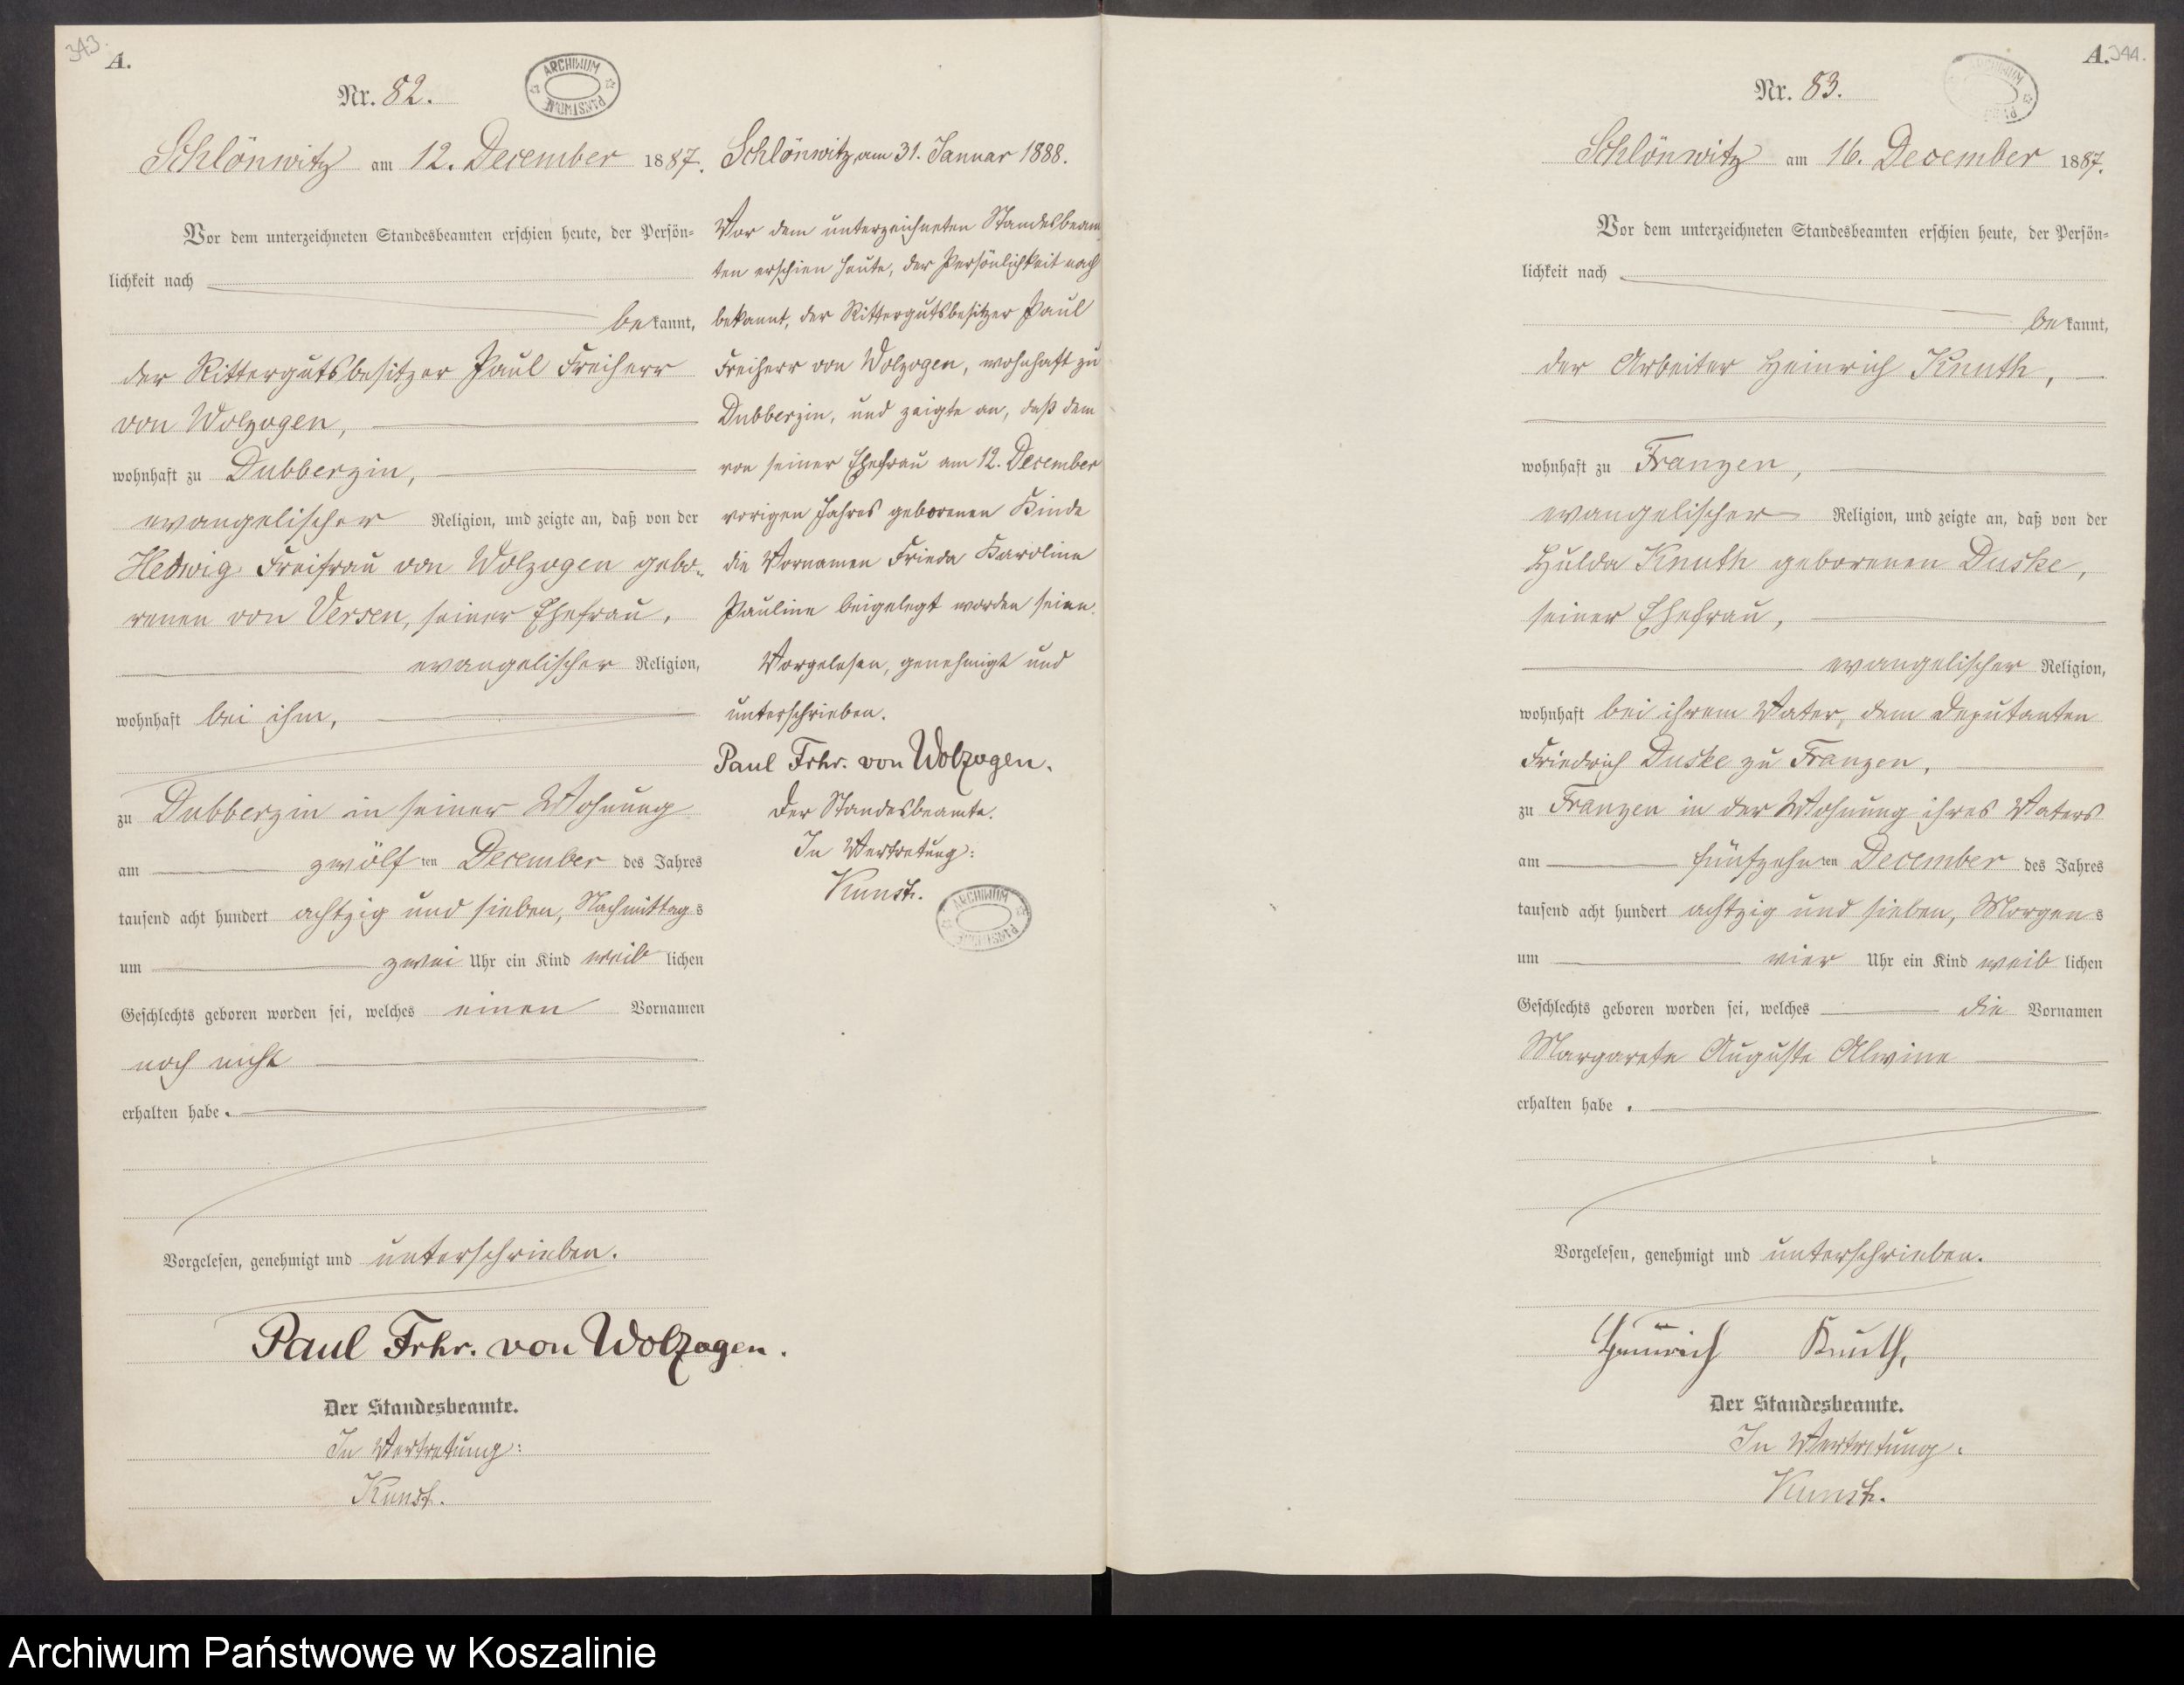 343.
A.
Nr. 82.
ARCHIWUM
PAŃSTWOWE
Schlönwitz am 12. December 1887.
Vor dem unterzeichneten Standesbeamten erschien heute, der Persön-
lichkeit nach
bekannt,
der Rittergutsbesitzer Paul Freiherr
von Wolzogen,
wohnhaft zu Dubberzin,
evangelischer Religion, und zeigte an, daß von der
Hedwig Freifrau von Wolzogen gebo-
renen von Versen, seiner Ehefrau,
evangelischer Religion,
wohnhaft bei ihm,
zu Dubberzin in seiner Wohnung
am zwölften December des Jahres
tausend acht hundert achtzig und sieben, Nachmittags
um zwei Uhr ein Kind weiblichen
Geschlechts geboren worden sei, welches einen Vornamen
noch nicht
erhalten habe.
Vorgelesen, genehmigt und unterschrieben.
Paul Frhr. von Wolzogen.
Der Standesbeamte.
In Vertretung:
Kunst.
Schlönwitz, am 31. Januar 1888.
Vor dem unterzeichneten Standesbeam-
ten erschien heute, der Persönlichkeit nach
bekannt, der Rittergutsbesitzer Paul
Freiherr von Wolzogen, wohnhaft zu
Dubberzin, und zeigte an, daß dem
von seiner Ehefrau am 12. December
vorigen Jahres geborenen Kinde
die Vornamen Frieda Karoline
Pauline beigelegt worden seien.
Vorgelesen, genehmigt und
unterschrieben.
Paul Frhr. von Wolzogen.
Der Standesbeamte.
In Vertretung:
Kunst.
ARCHIWUM
PAŃSTWOWE
A. 344.
Nr. 83.
Schlönwitz am 16. December 1887.
Vor dem unterzeichneten Standesbeamten erschien heute, der Persön-
lichkeit nach
bekannt,
der Arbeiter Heinrich Knuth,
wohnhaft zu Franzen,
evangelischer Religion, und zeigte an, daß von der
Hulda Knuth geborenen Duske,
seiner Ehefrau,
evangelischer Religion,
wohnhaft bei ihrem Vater, dem Deputanten
Friedrich Duske zu Franzen,
zu Franzen in der Wohnung ihres Vaters
am fünfzehnten December des Jahres
tausend acht hundert achtzig und sieben, Morgens
um vier Uhr ein Kind weiblichen
Geschlechts geboren worden sei, welches die Vornamen
Margarete Auguste Alwine
erhalten habe.
Vorgelesen, genehmigt und unterschrieben.
Heinrich Knuth,
Der Standesbeamte.
In Vertretung:
Kunst.
Archiwum Państwowe w Koszalinie